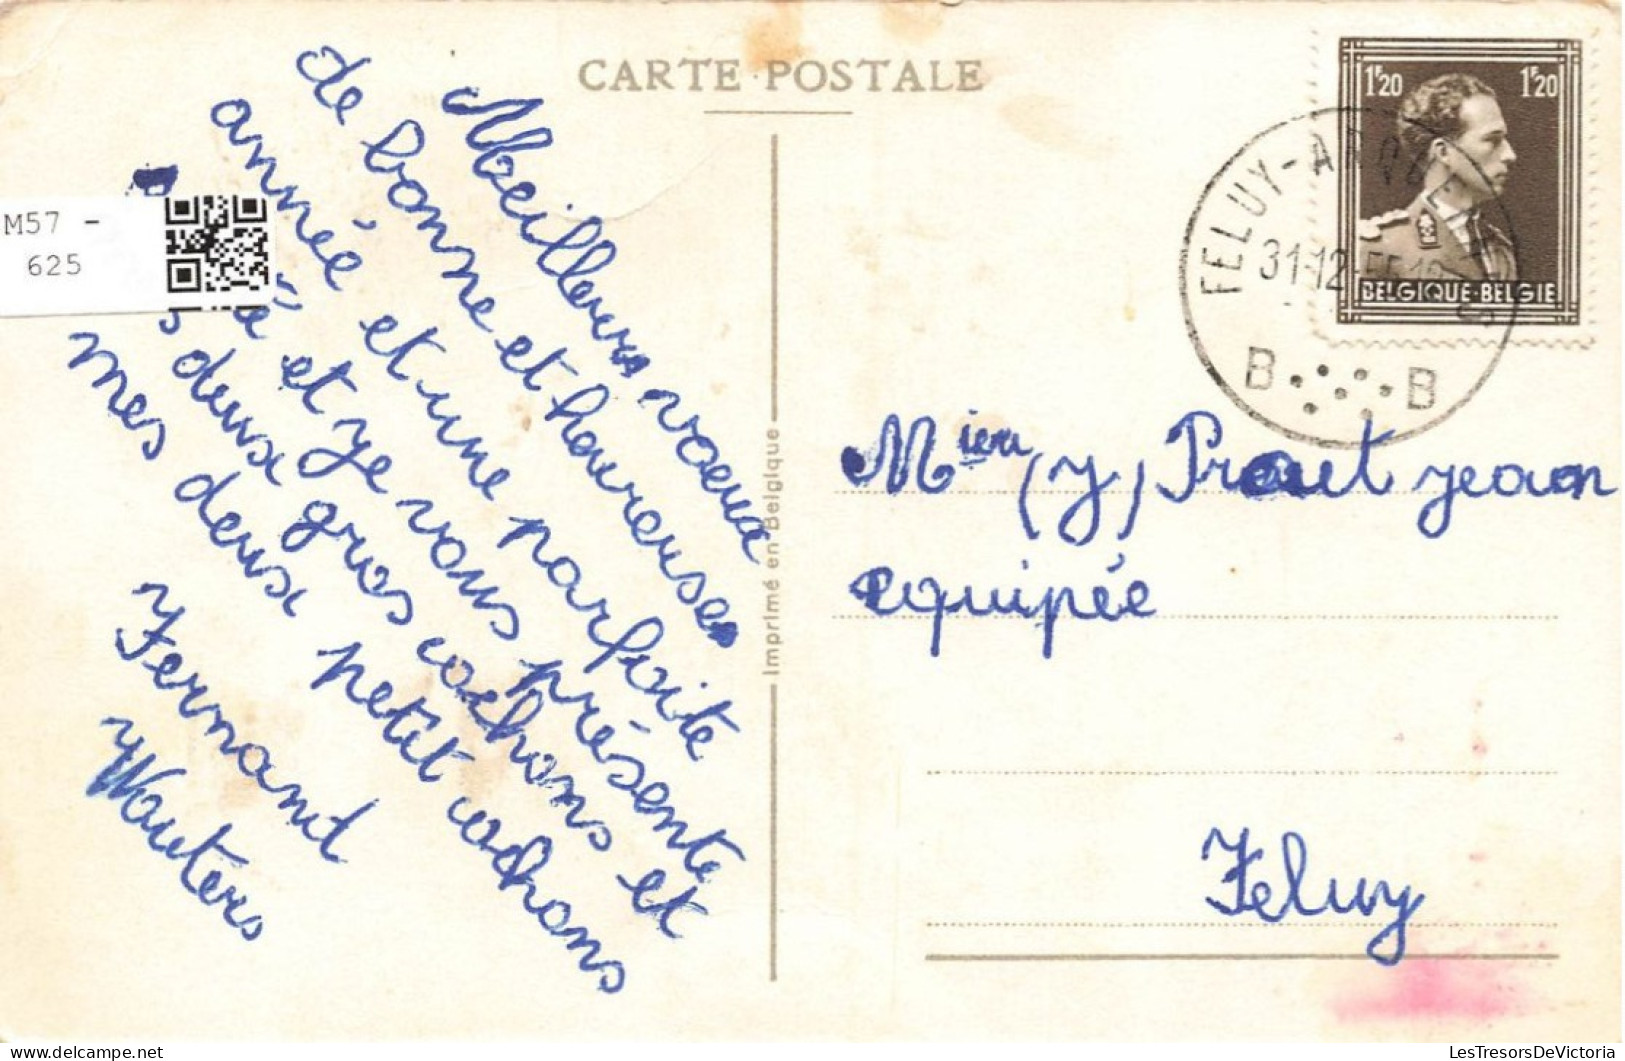 CARTE POSTALE
Meilleurs voeux
de bonne et heureuse
année et une parfaite
é et je vous présente
s deux gros cochons et
mes deux petit cochons
Fernand
Wauters
M57 -
625
Imprimé en Belgique
1F20 1F20
BELGIQUE-BELGIE
FELUY-ARQUENNES
31-12
B B
Jean
equipée
Feluy
LesTresorsDeVictoria